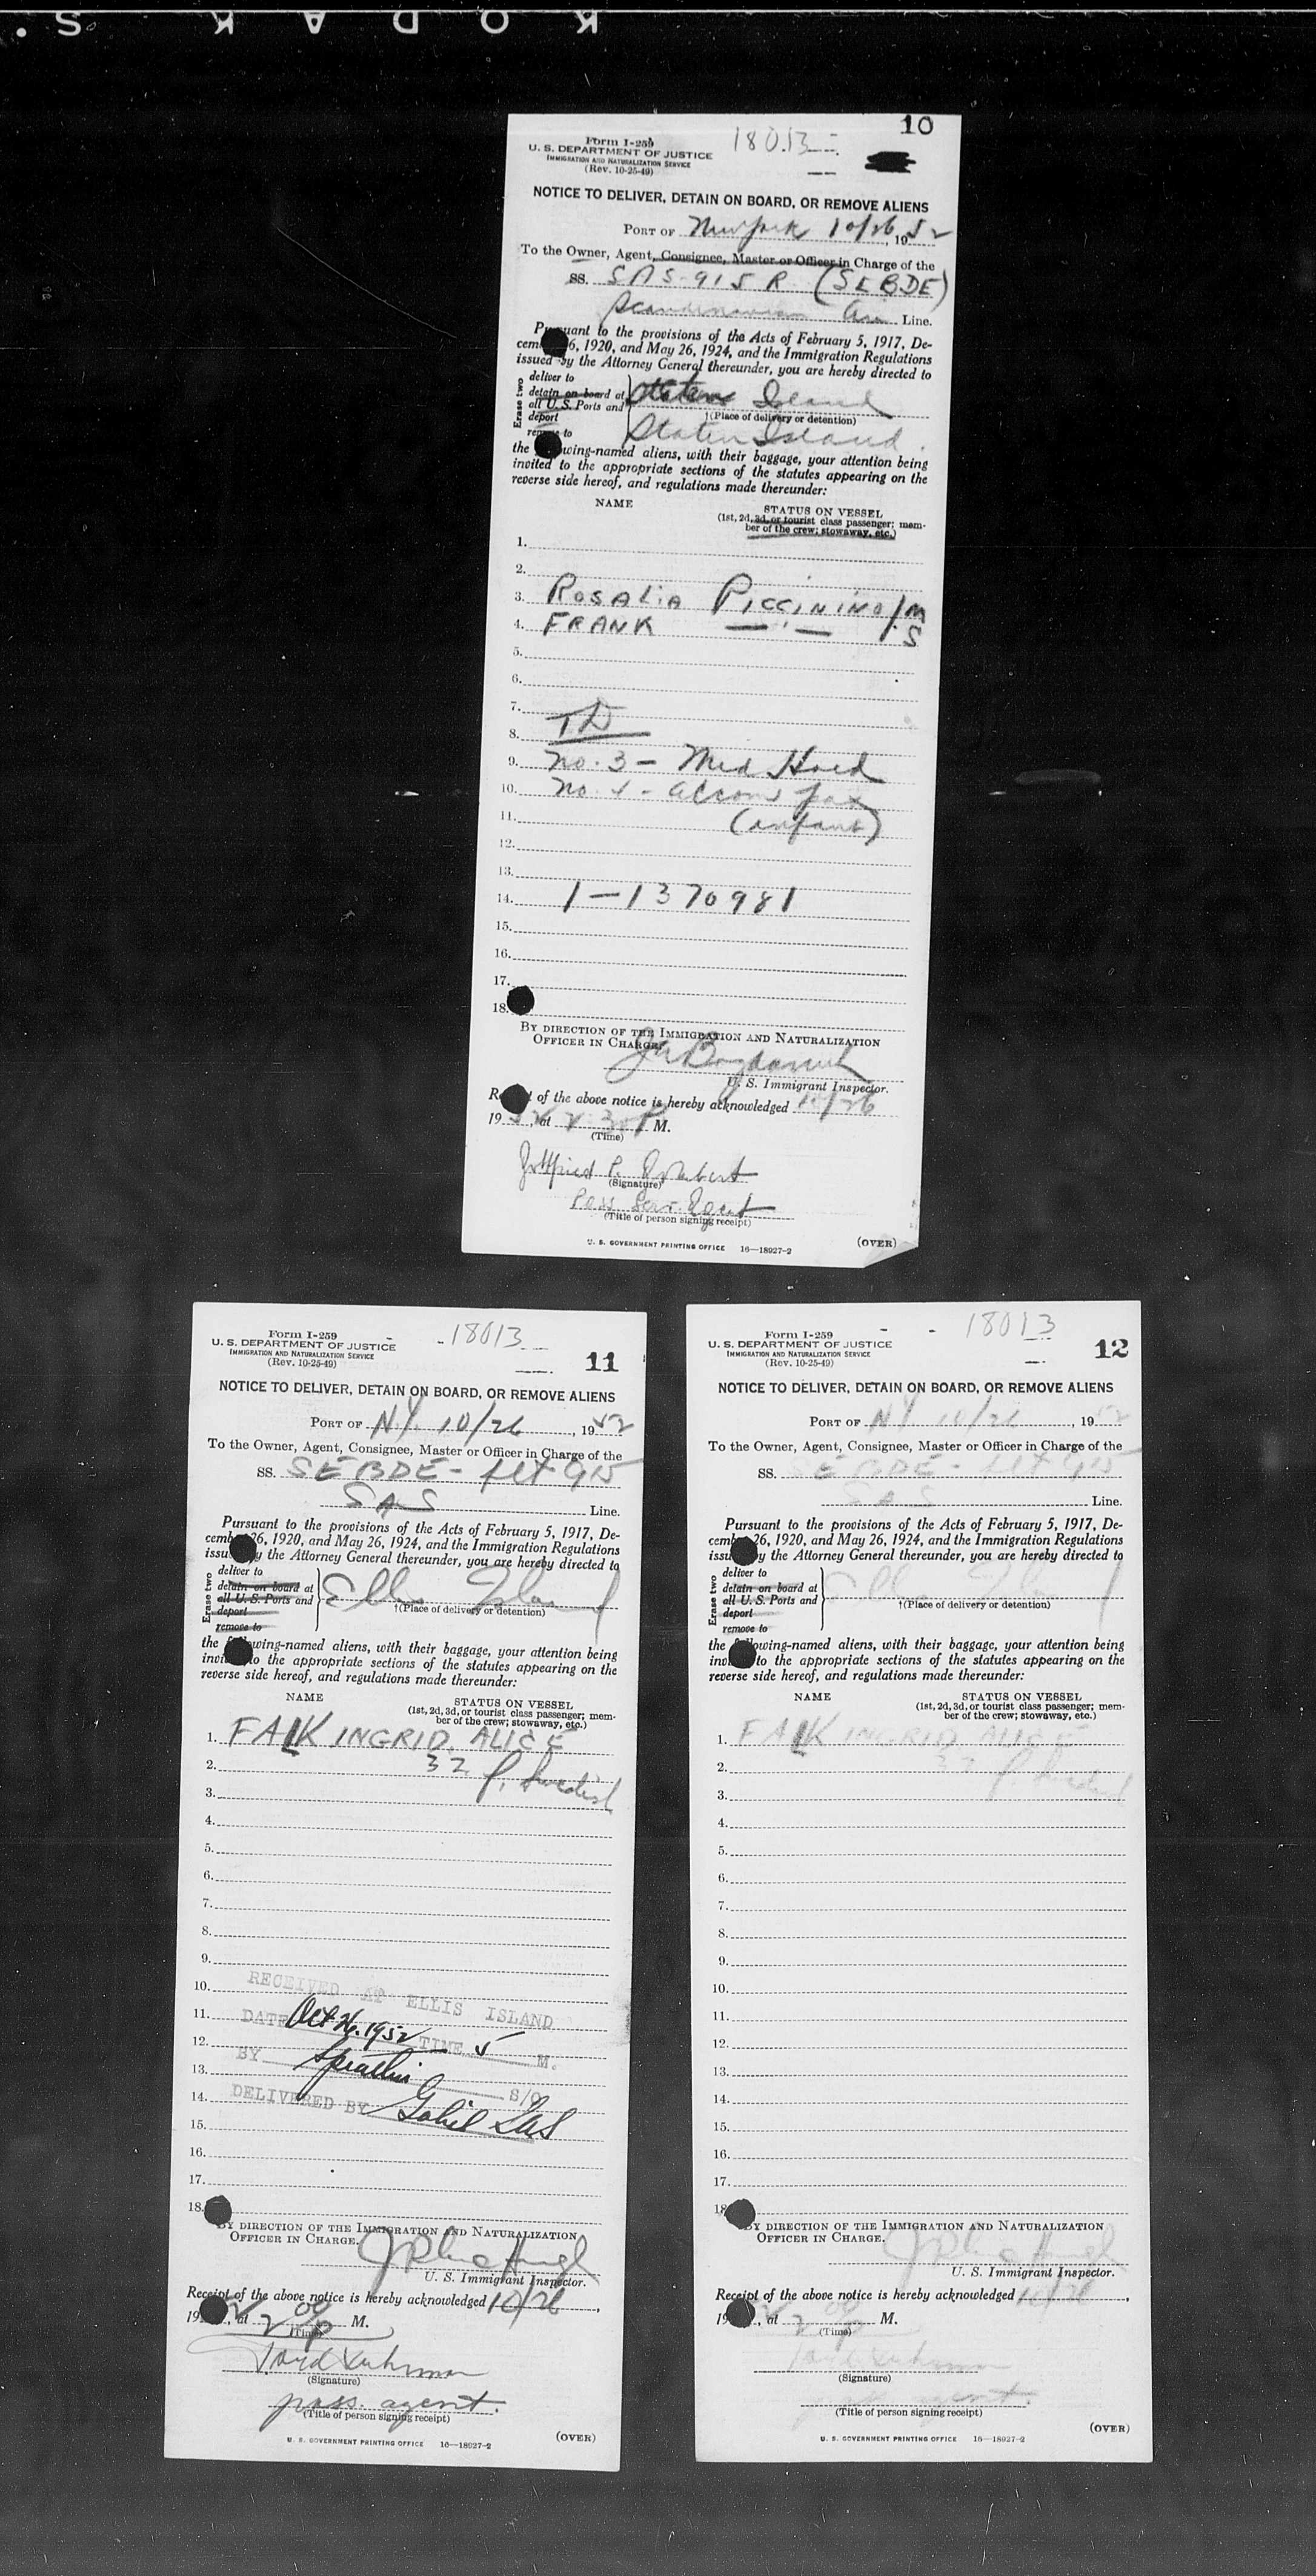 KODAK S.
10
Form I-259
18013
U. S. DEPARTMENT OF JUSTICE
IMMIGRATION AND NATURALIZATION SERVICE
(Rev. 10-25-49)
NOTICE TO DELIVER, DETAIN ON BOARD, OR REMOVE ALIENS
PORT OF New York 10/26, 1952
To the Owner, Agent, Consignee, Master or Officer in Charge of the
SS. SAS-915 R (SEBDE)
Scandinavian Air Line.
Pursuant to the provisions of the Acts of February 5, 1917, De-
cem 6, 1920, and May 26, 1924, and the Immigration Regulations
issued by the Attorney General thereunder, you are hereby directed to
Erase two
deliver to
detain on board at
all U.S. Ports and
deport
remove to
Staten Island
†(Place of delivery or detention)
Staten Island.
the wing-named aliens, with their baggage, your attention being
invited to the appropriate sections of the statutes appearing on the
reverse side hereof, and regulations made thereunder:
NAME STATUS ON VESSEL
(1st, 2d, 3d, or tourist class passenger; mem-
ber of the crew; stowaway, etc.)
1.
2.
3. ROSALIA PICCININO / M
4. FRANK — " — / S
5.
6.
7.
8. TD
9. No. 3 - Med Hold
10. No. 4 - accom pax
11. (infant)
12.
13.
14. 1-1370981
15.
16.
17.
18.
BY DIRECTION OF THE IMMIGRATION AND NATURALIZATION
OFFICER IN CHARGE.
U. S. Immigrant Inspector.
R t of the above notice is hereby acknowledged 10/26
1952, at 2:30 P M.
(Time)
Gottfried P.
(Signature)
Pass Serv. Agent
(Title of person signing receipt)
U. S. GOVERNMENT PRINTING OFFICE 16—18927-2
(OVER)
Form I-259
18013
U. S. DEPARTMENT OF JUSTICE
IMMIGRATION AND NATURALIZATION SERVICE
(Rev. 10-25-49)
11
NOTICE TO DELIVER, DETAIN ON BOARD, OR REMOVE ALIENS
PORT OF N.Y. 10/26, 1952
To the Owner, Agent, Consignee, Master or Officer in Charge of the
SS. SEBDE - flt 915
SAS Line.
Pursuant to the provisions of the Acts of February 5, 1917, De-
cemb 26, 1920, and May 26, 1924, and the Immigration Regulations
issu y the Attorney General thereunder, you are hereby directed to
Erase two
deliver to
detain on board at
all U.S. Ports and
deport
remove to
Ellis Island
†(Place of delivery or detention)
the f wing-named aliens, with their baggage, your attention being
invi to the appropriate sections of the statutes appearing on the
reverse side hereof, and regulations made thereunder:
NAME STATUS ON VESSEL
(1st, 2d, 3d, or tourist class passenger; mem-
ber of the crew; stowaway, etc.)
1. FALK INGRID, ALICE
2. 32 f. Swedish
3.
4.
5.
6.
7.
8.
9.
10. RECEIVED AT ELLIS ISLAND
11. DATE Oct 26. 1952 TIME 5 M.
12.
BY S/O
13.
14. DELIVERED BY SAS
15.
16.
17.
18.
BY DIRECTION OF THE IMMIGRATION AND NATURALIZATION
OFFICER IN CHARGE.
U. S. Immigrant Inspector.
Receipt of the above notice is hereby acknowledged 10/26,
19 2, at 2 00 P M.
(Time)
(Signature)
pass. agent.
(Title of person signing receipt)
U. S. GOVERNMENT PRINTING OFFICE 16—18927-2
(OVER)
Form I-259
18013
U. S. DEPARTMENT OF JUSTICE
IMMIGRATION AND NATURALIZATION SERVICE
(Rev. 10-25-49)
12
NOTICE TO DELIVER, DETAIN ON BOARD, OR REMOVE ALIENS
PORT OF N Y 10/26, 1952
To the Owner, Agent, Consignee, Master or Officer in Charge of the
SS. SEBDE - flt 915
SAS Line.
Pursuant to the provisions of the Acts of February 5, 1917, De-
cemb 26, 1920, and May 26, 1924, and the Immigration Regulations
issu y the Attorney General thereunder, you are hereby directed to
Erase two
deliver to
detain on board at
all U.S. Ports and
deport
remove to
Ellis Island
†(Place of delivery or detention)
the lowing-named aliens, with their baggage, your attention being
invi to the appropriate sections of the statutes appearing on the
reverse side hereof, and regulations made thereunder:
NAME STATUS ON VESSEL
(1st, 2d, 3d, or tourist class passenger; mem-
ber of the crew; stowaway, etc.)
1. FALK INGRID, ALICE
2. 32 f Swedish
3.
4.
5.
6.
7.
8.
9.
10.
11.
12.
13.
14.
15.
16.
17.
18
BY DIRECTION OF THE IMMIGRATION AND NATURALIZATION
OFFICER IN CHARGE.
U. S. Immigrant Inspector.
Receipt of the above notice is hereby acknowledged 10/26,
19 2, at 2 00 P M.
(Time)
(Signature)
pass agent.
(Title of person signing receipt)
U. S. GOVERNMENT PRINTING OFFICE 16—18927-2
(OVER)